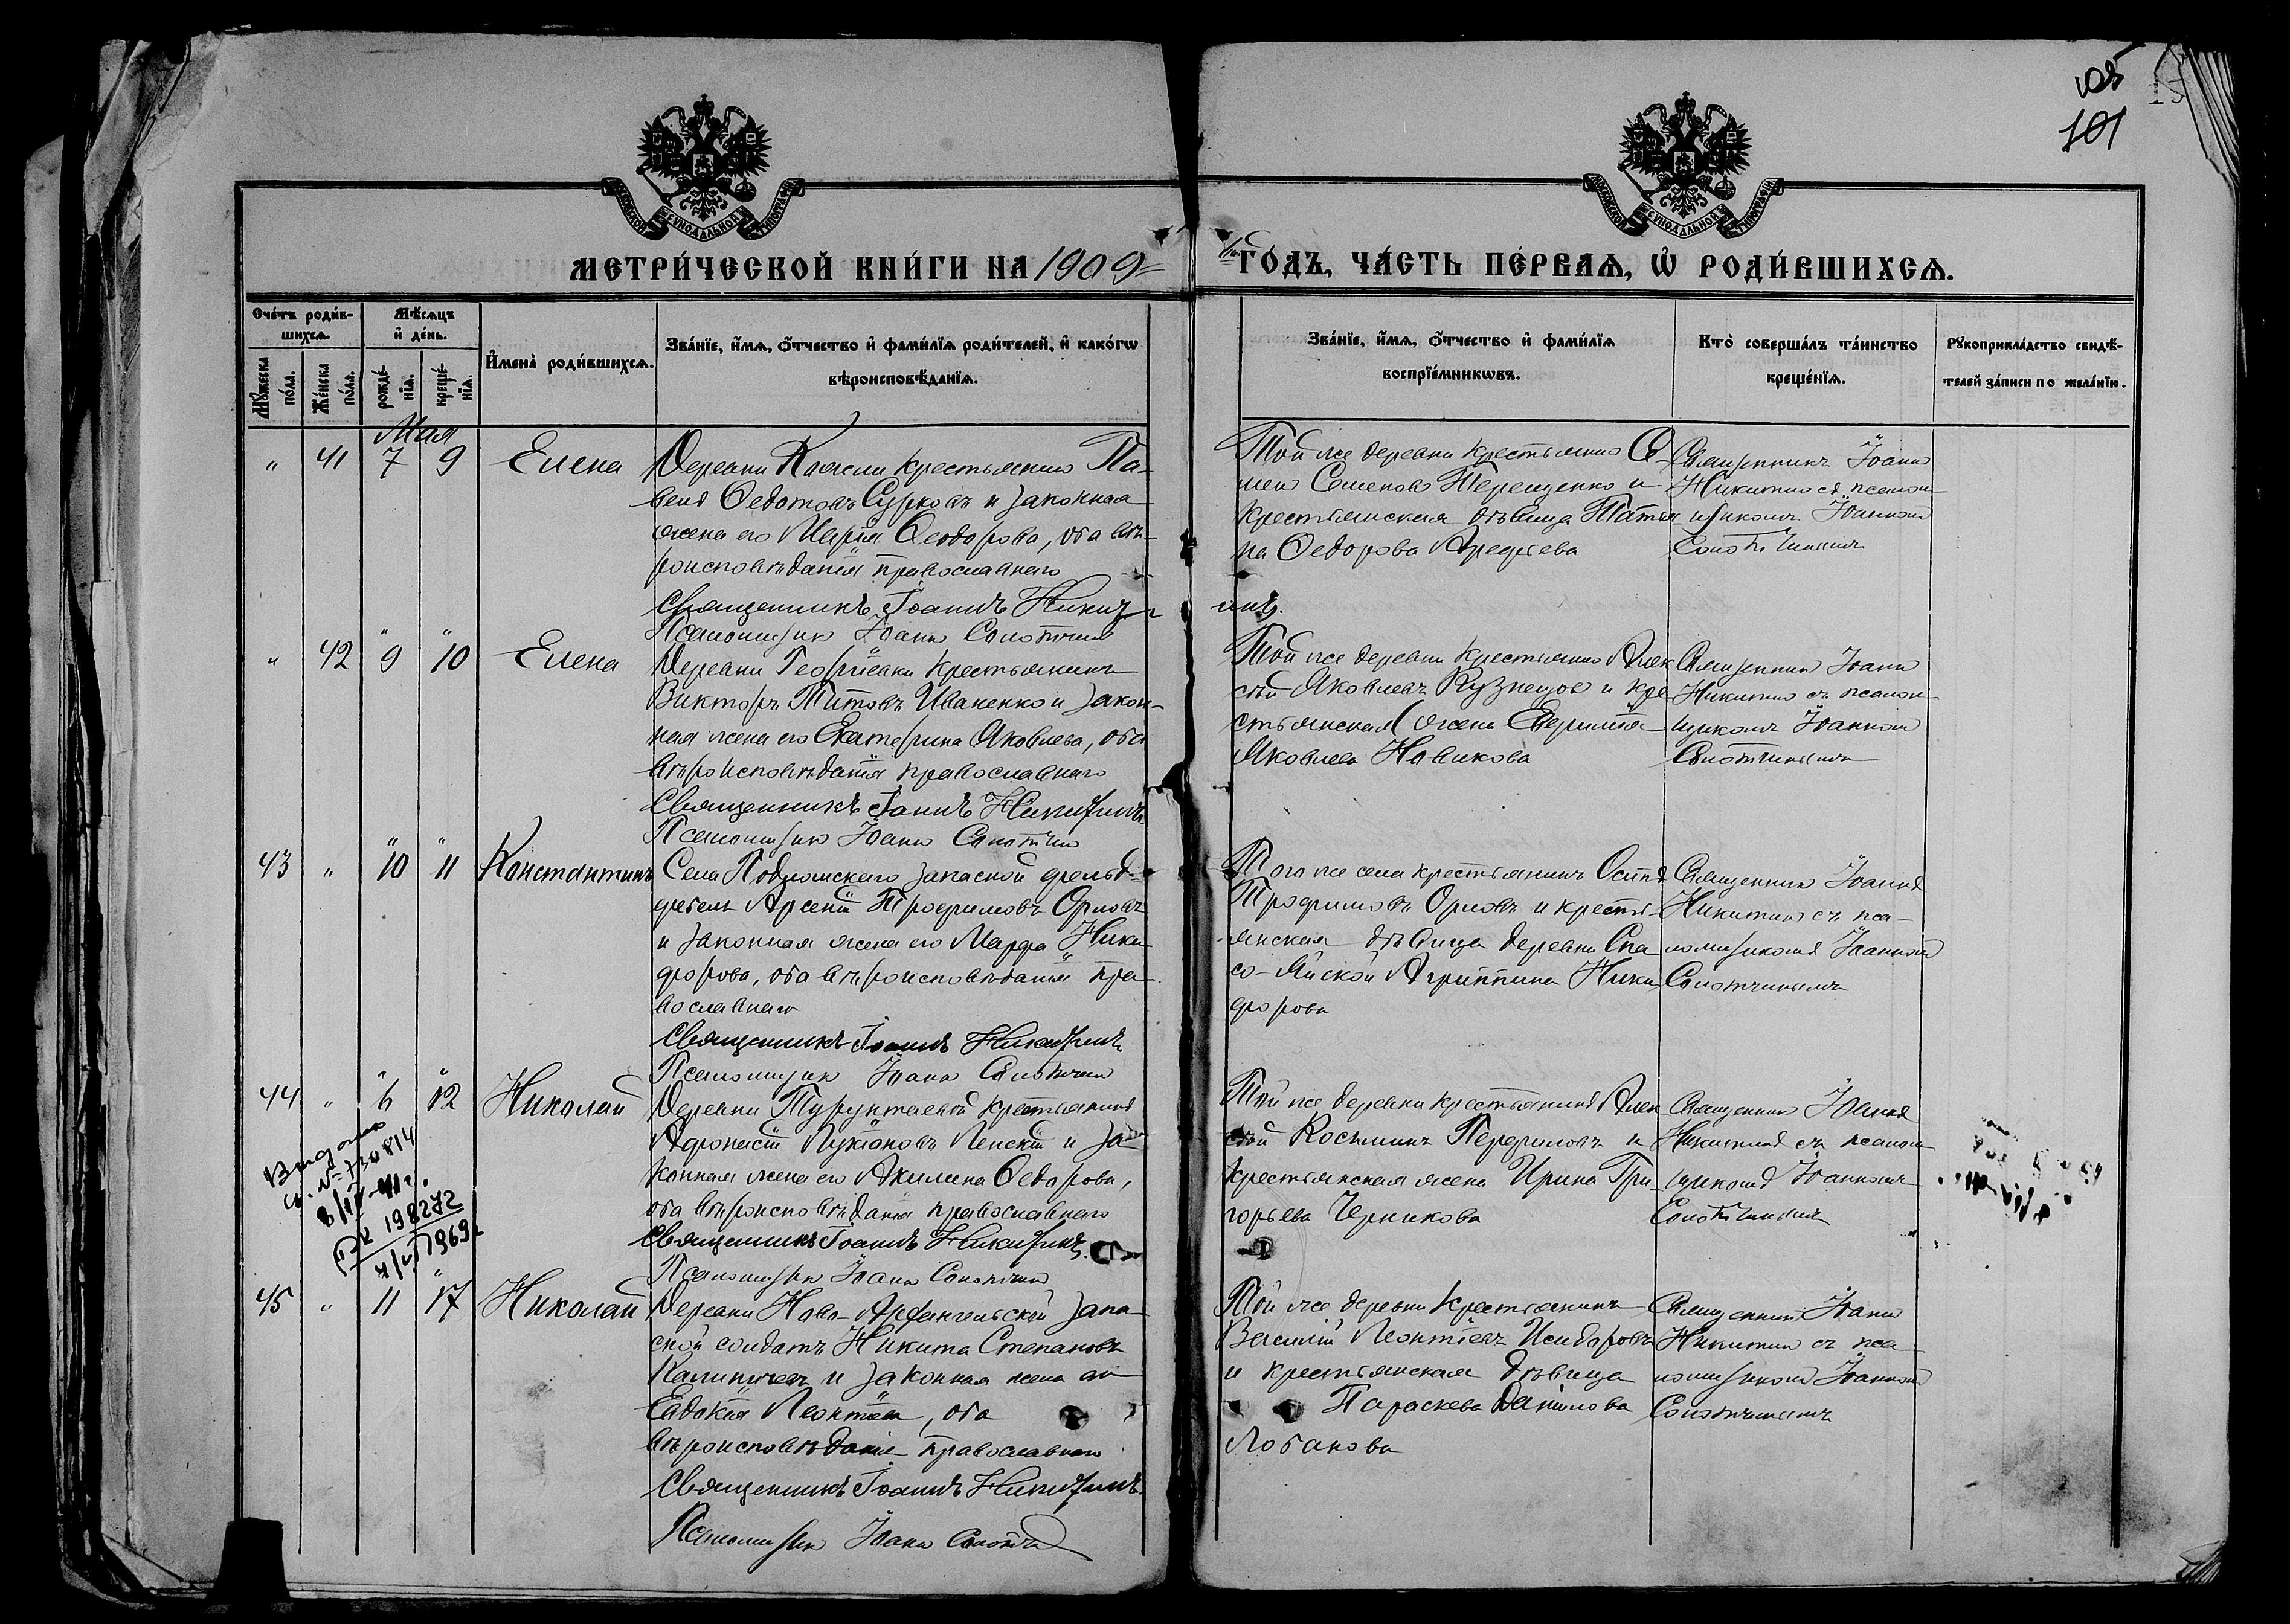 105
101
МОСКОВСКОЙ СУНОДАЛЬНОЙ ТИПОГРАФІИ
МОСКОВСКОЙ СУНОДАЛЬНОЙ ТИПОГРАФІИ
МЕТРИ́ЧЕСКОЙ КНИ́ГИ НА 1909 ГО́ДЪ, ЧА́СТЬ ПЕ́РВАѦ, Ѡ҆ РОДИ́ВШИХСѦ.
Сче́тъ роди́в-
шихсѧ.
Мꙋ́жеска по́ла.
Же́нска по́ла.
Мѣ́сѧцъ
и҆ де́нь.
рожде́-
нїѧ.
креще́-
нїѧ.
И҆мена̀ роди́вшихсѧ.
Зва́нїе, и҆́мѧ, ѻ҆́тчество и҆ фами́лїѧ роди́телей, и҆ како́гѡ
вѣроисповѣ́данїѧ.
Зва́нїе, и҆́мѧ, ѻ҆́тчество и҆ фами́лїѧ
воспрїе́мникѡвъ.
Кто̀ соверша́лъ та́инство
креще́нїѧ.
Рꙋкоприкла́дство свидѣ́-
телей за́писи по жела́нїю.
Мая
" 41 7 9 Елена
Деревни крестьянинъ Па-
велъ Ѳедотовъ Сурковъ и законная
жена его Марія Ѳеодорова, оба вѣ-
роисповѣданія православнаго
Священникъ Іоаннъ Никитинъ.
Псаломщикъ Іоаннъ
Той же деревни крестьянинъ
Семеновъ Терещенко и
крестьянская дѣвица Татья
на Ѳедорова
Священникъ Іоаннъ
Никитинъ съ псалом-
щикомъ Іоанномъ
" 42 9 10 Елена
Деревни Георгіевки крестьянинъ
Викторъ Титовъ Иваненко и закон-
ная жена его Екатерина Яковлева, оба
вѣроисповѣданія православнаго
Священникъ Іоаннъ Никитинъ.
Псаломщикъ Іоаннъ
Той же деревни крестьянинъ Алек
сѣй Яковлевъ Кузнецовъ и кре-
стьянская жена
Яковлева Новикова
Священникъ Іоаннъ
Никитинъ съ псалом-
щикомъ Іоанномъ
43 " 10 11 Константинъ
Села запасной фельд-
фебель Арсеній Трофимовъ Орловъ
и законная жена его Марфа Ники-
форова, оба вѣроисповѣданія пра-
вославнаго
Священникъ Іоаннъ Никитинъ
Псаломщикъ Іоаннъ
Того же села крестьянинъ Осипъ
Трофимовъ Орловъ и кресть-
янская дѣвица деревни Спа
со-Яйской Агриппина Ники
форова
Священникъ Іоаннъ
Никитинъ съ пса-
ломщикомъ Іоанномъ
44 " 6 12 Николай
Деревни Турунтаевой крестьянинъ
Афонасій Лукіановъ Ленскій и за-
конная жена его Акилина Ѳедорова,
оба вѣроисповѣданія православнаго
Священникъ Іоаннъ Никитинъ.
Псаломщикъ Іоаннъ
Той же деревни крестьянинъ Алек
сѣй Косьминъ Перфиловъ и
крестьянская жена Ирина Гри-
горьева Черникова
Священникъ Іоаннъ
Никитинъ съ псалом-
щикомъ Іоанномъ
198272
45 " 11 17 Николай
Деревни Ново-Архангельской запа-
сной солдатъ Никита Степановъ
и законная жена его
Евдокія Леонтіева, оба
вѣроисповѣданія православнаго
Священникъ Іоаннъ Никитинъ.
Псаломщикъ Іоаннъ
Той же деревни крестьянинъ
Василій Леонтіевъ Исидоровъ
и крестьянская дѣвица
Параскева Данилова
Лобанова
Священникъ Іоаннъ
Никитинъ съ пса-
ломщикомъ Іоанномъ